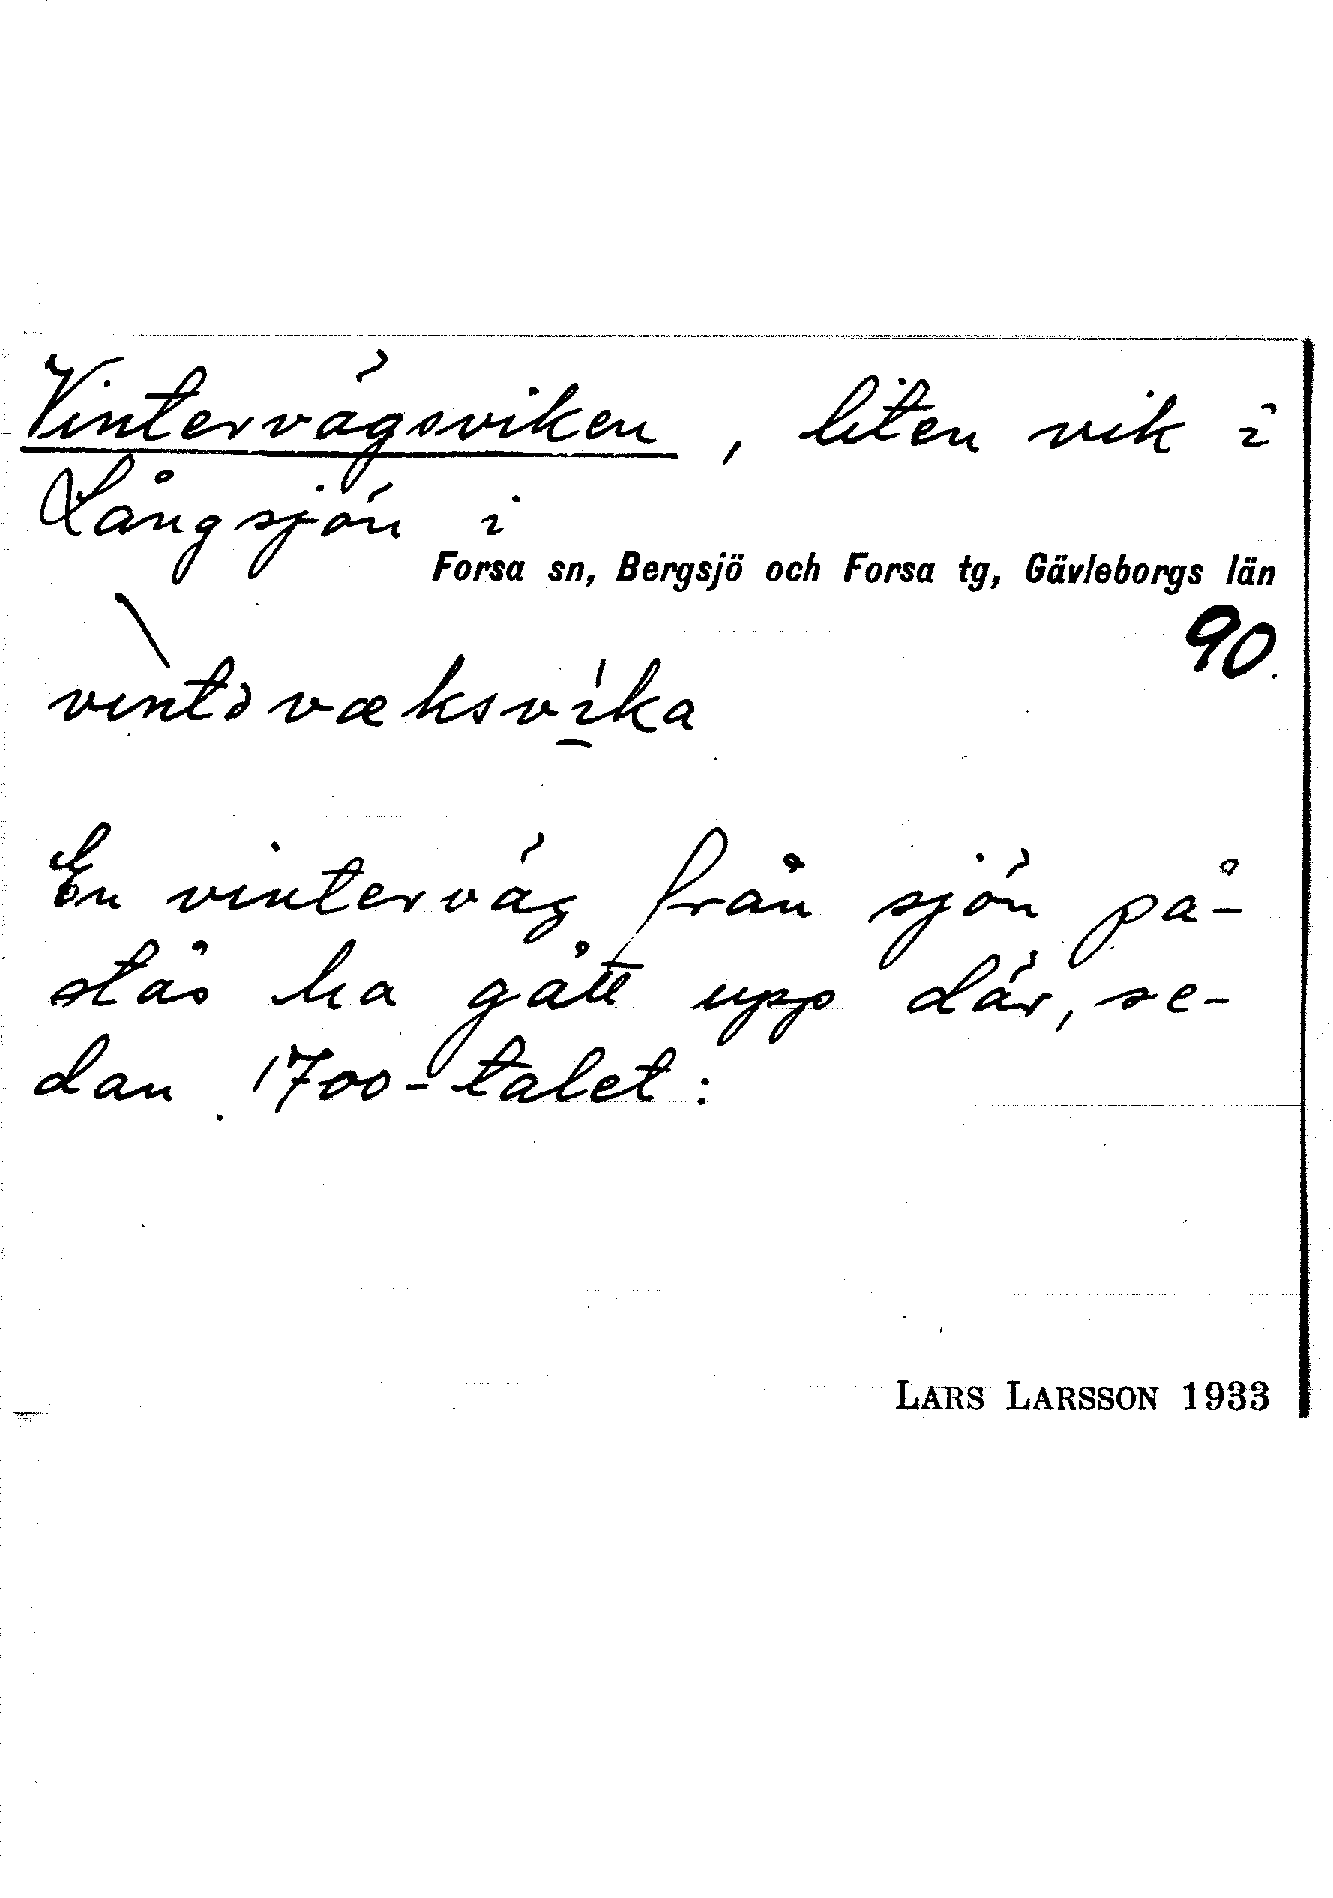 Vintervägsviken, liten vik i
Långsjön i
Forsa sn, Bergsjö och Forsa tg, Gävleborgs län
90
vìntəvæksvi̱ˈka
En vinterväg från sjön på-
stås ha gått upp där, se-
dan 1700-talet:
LARS LARSSON 1933